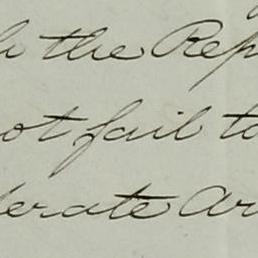 the Rep
not fail to
erate Ar